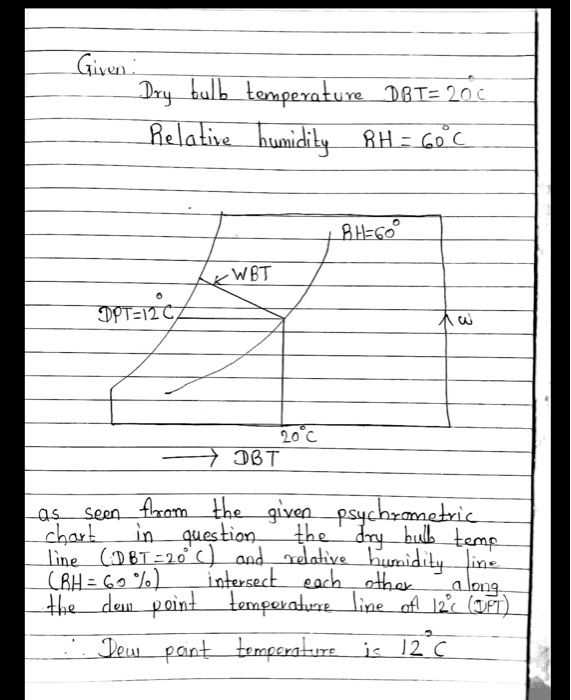 Given:
Dry bulb temperature DBT= 20°C
Relative humidity RH = 60°C
RH=60°
WBT
DPT=12°C
ω
20°C
→ DBT
as seen from the given psychrometric
chart in question the dry bulb temp
line (DBT=20°C) and relative humidity line
(RH = 60%) intersect each other along
the dew point temperature line of 12°c (DPT)
∴ Dew point temperature is 12°C